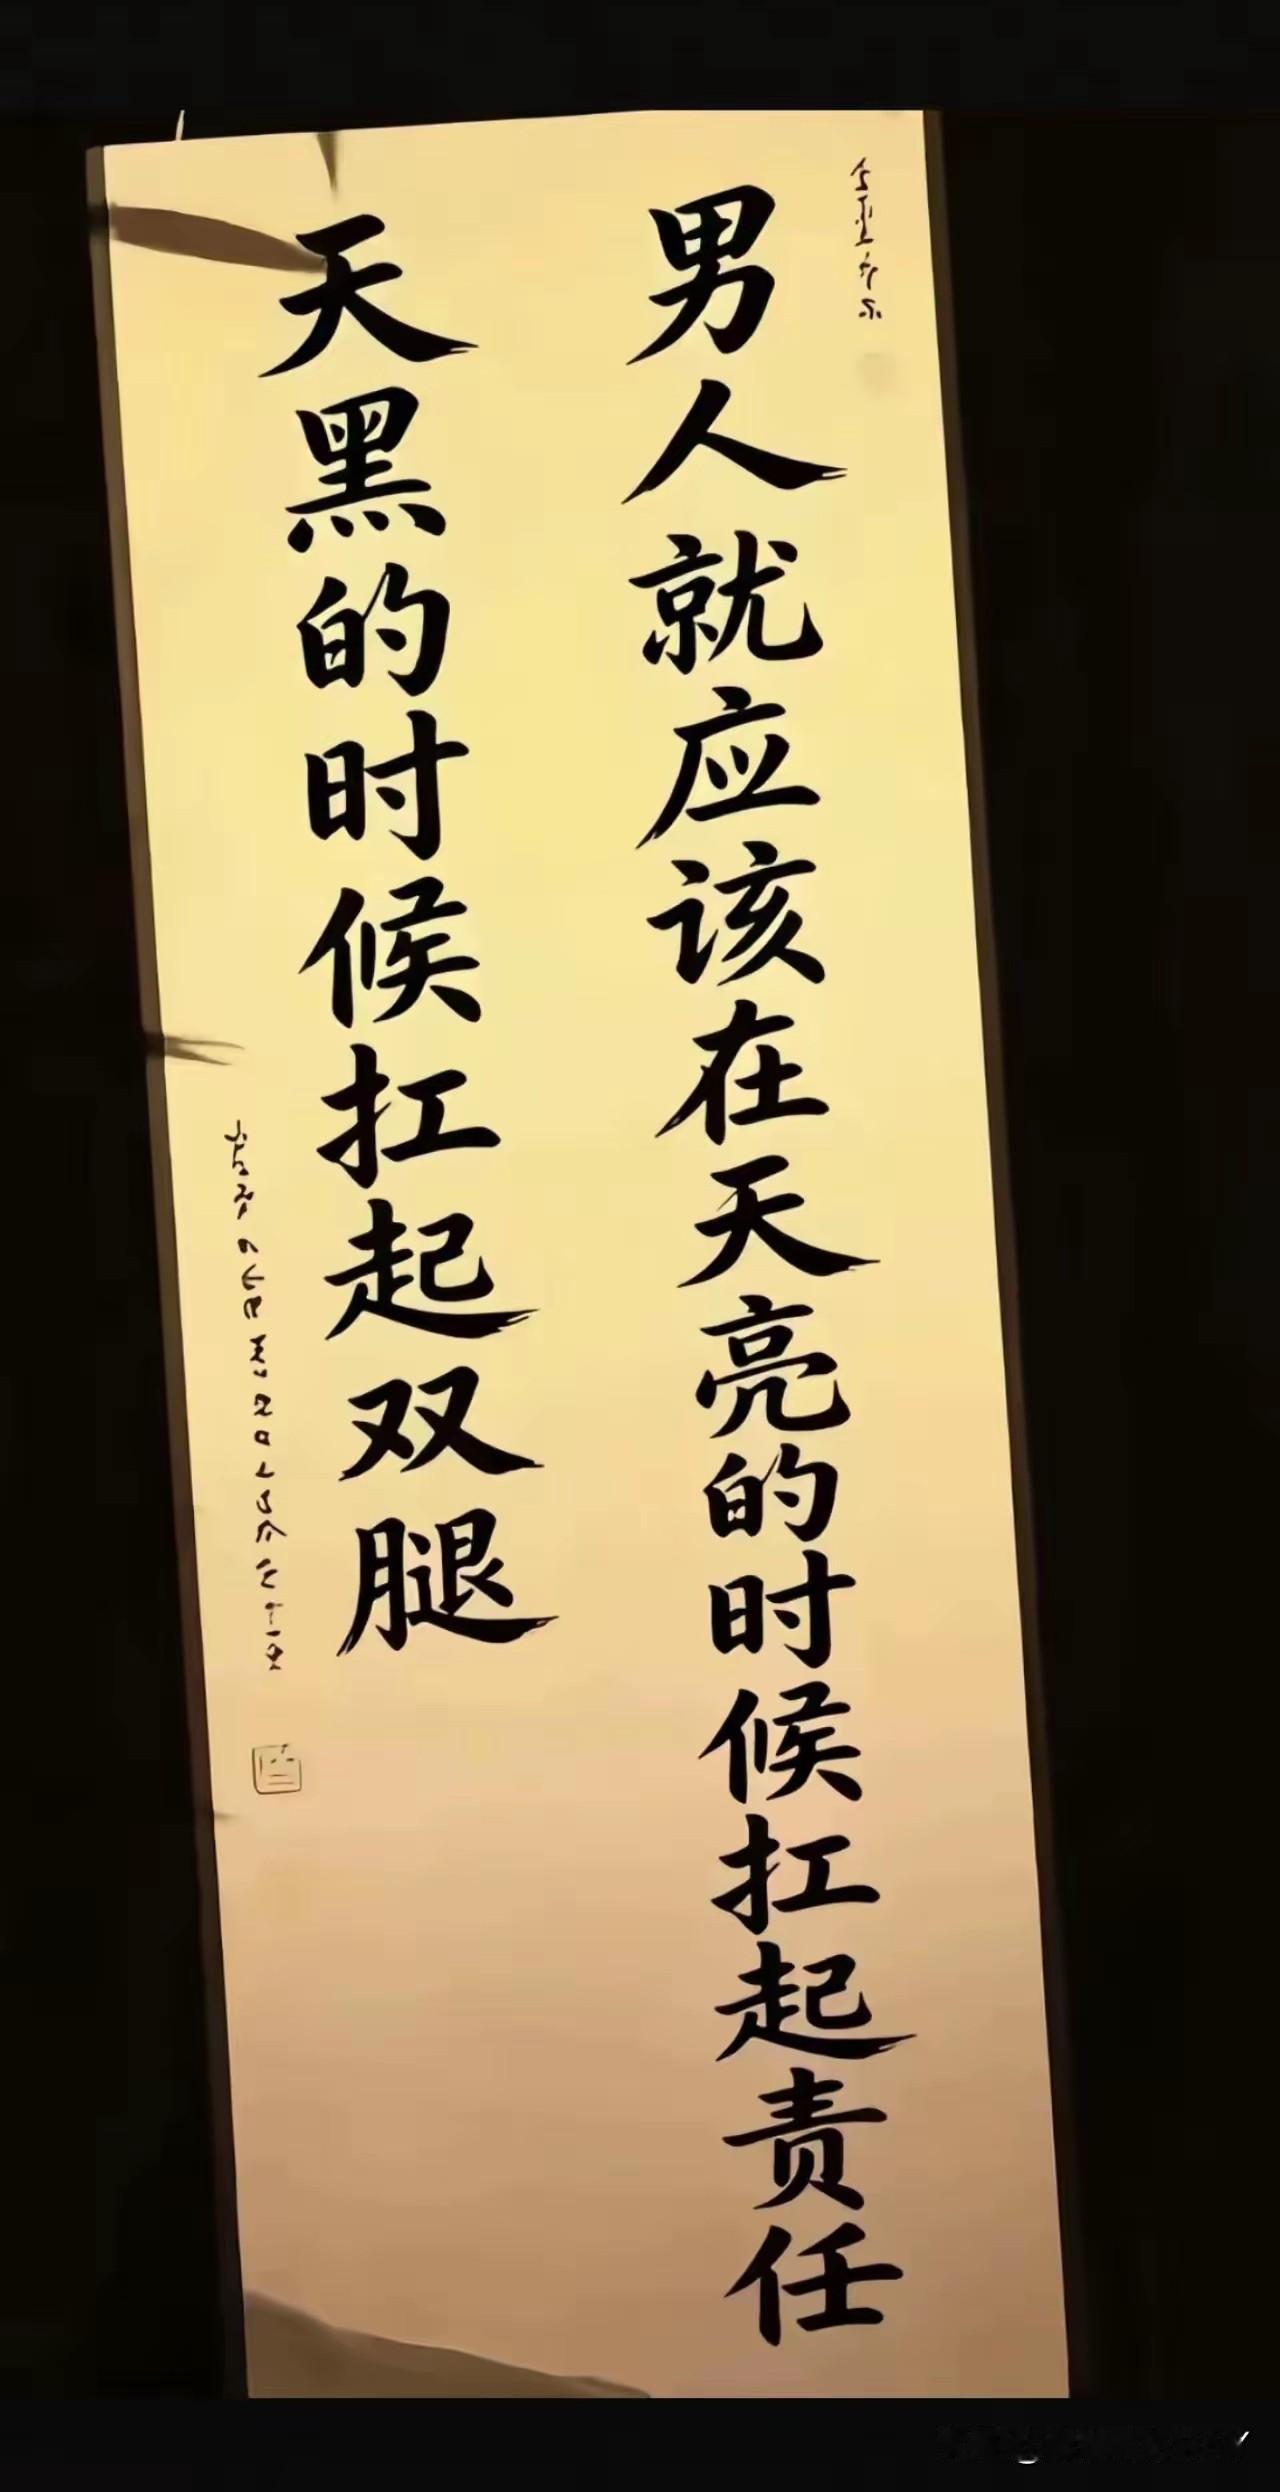 男人就应该在天亮的时候扛起责任
天黑的时候扛起双腿